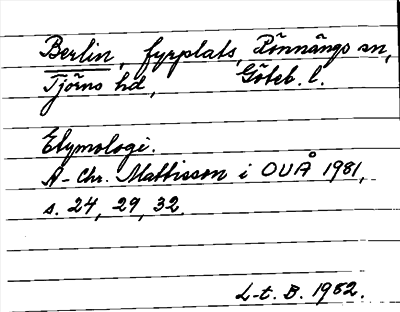 Berlin, fyrplats, Rönnängs sn,
Tjörns hd, Göteb. l.
Etymologi.
A-Chr. Mattisson i OUÅ 1981,
s. 24, 29, 32.
L-t. B. 1982.